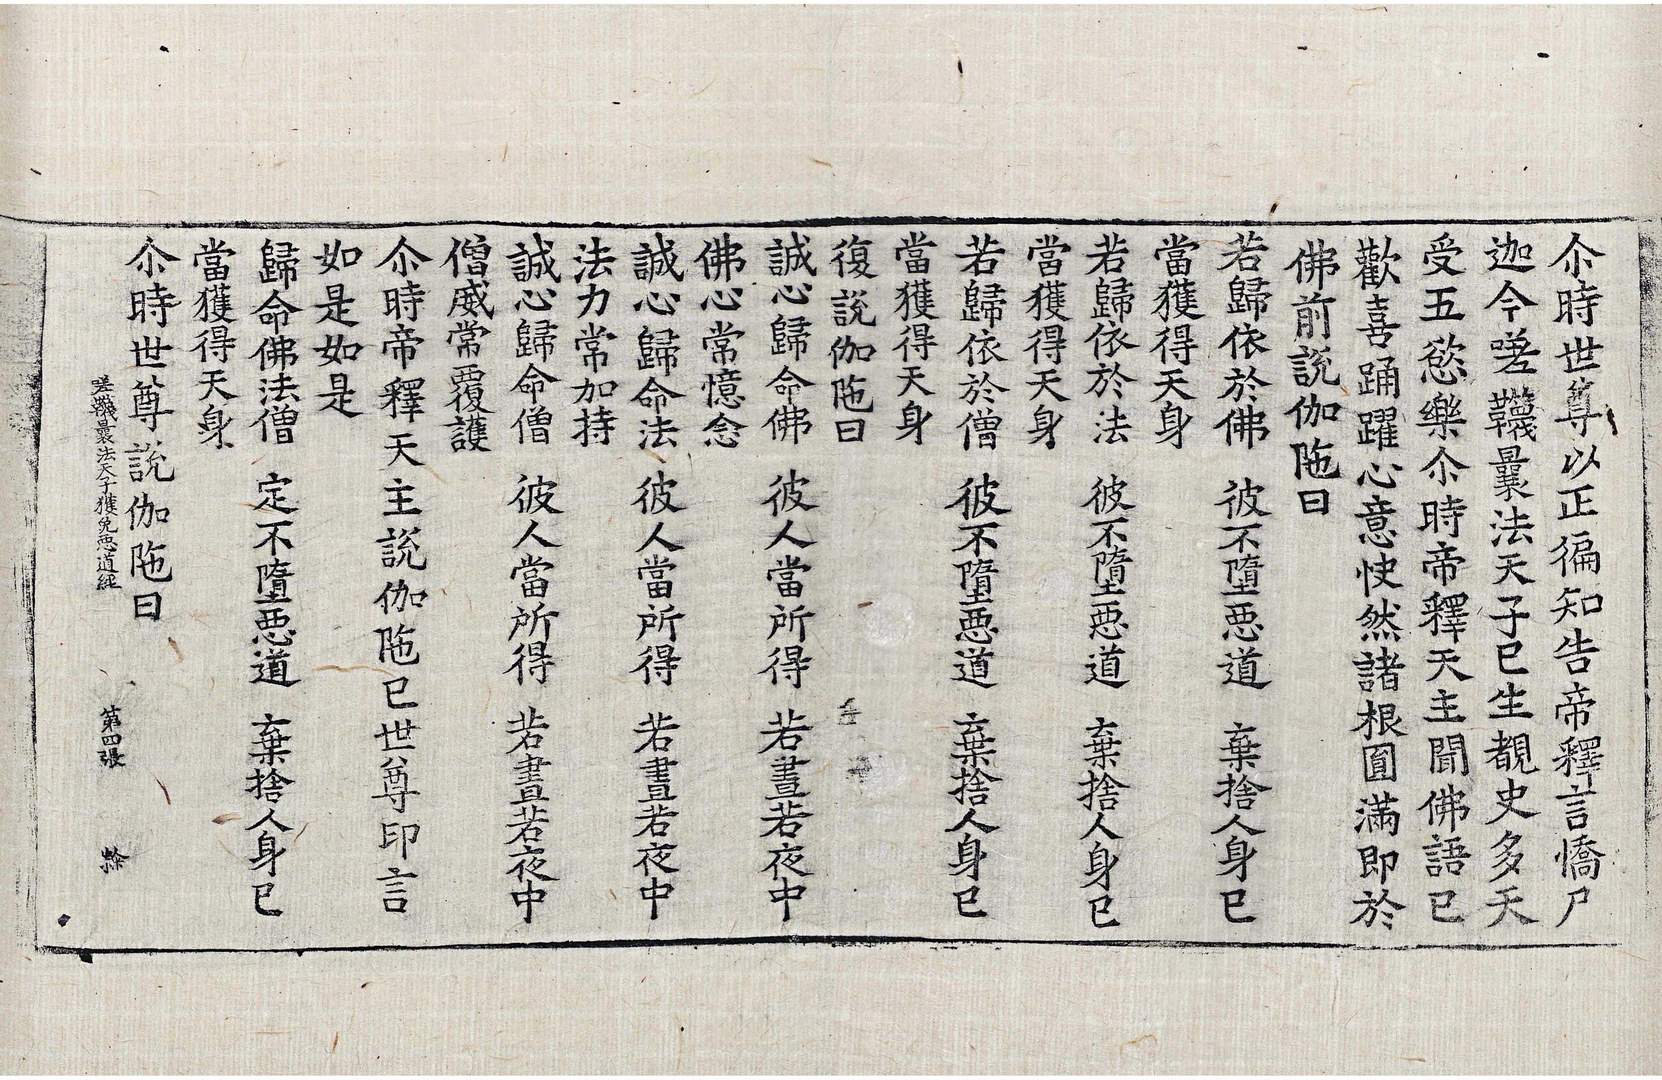 尒時世尊以正徧知告帝釋言憍尸
迦今嗟韈曩法天子已生覩史多天
受五慾樂尒時帝釋天主聞佛語已
歡喜踊躍心意快然諸根圓滿即於
佛前說伽陁曰
若歸依於佛　彼不墮惡道　棄捨人身已
當獲得天身
若歸依於法　彼不墮惡道　棄捨人身已
當獲得天身
若歸依於僧　彼不墮惡道　棄捨人身已
當獲得天身
復說伽陁曰
誠心歸命佛　彼人當所得　若晝若夜中
佛心常憶念
誠心歸命法　彼人當所得　若晝若夜中
法力常加持
誠心歸命僧　彼人當所得　若晝若夜中
僧威常覆護
尒時帝釋天主說伽陁已世尊印言
如是如是
歸命佛法僧　定不墮惡道　棄捨人身已
當獲得天身
尒時世尊說伽陁曰
嗟韈曩法天子獲免惡道經　第四張